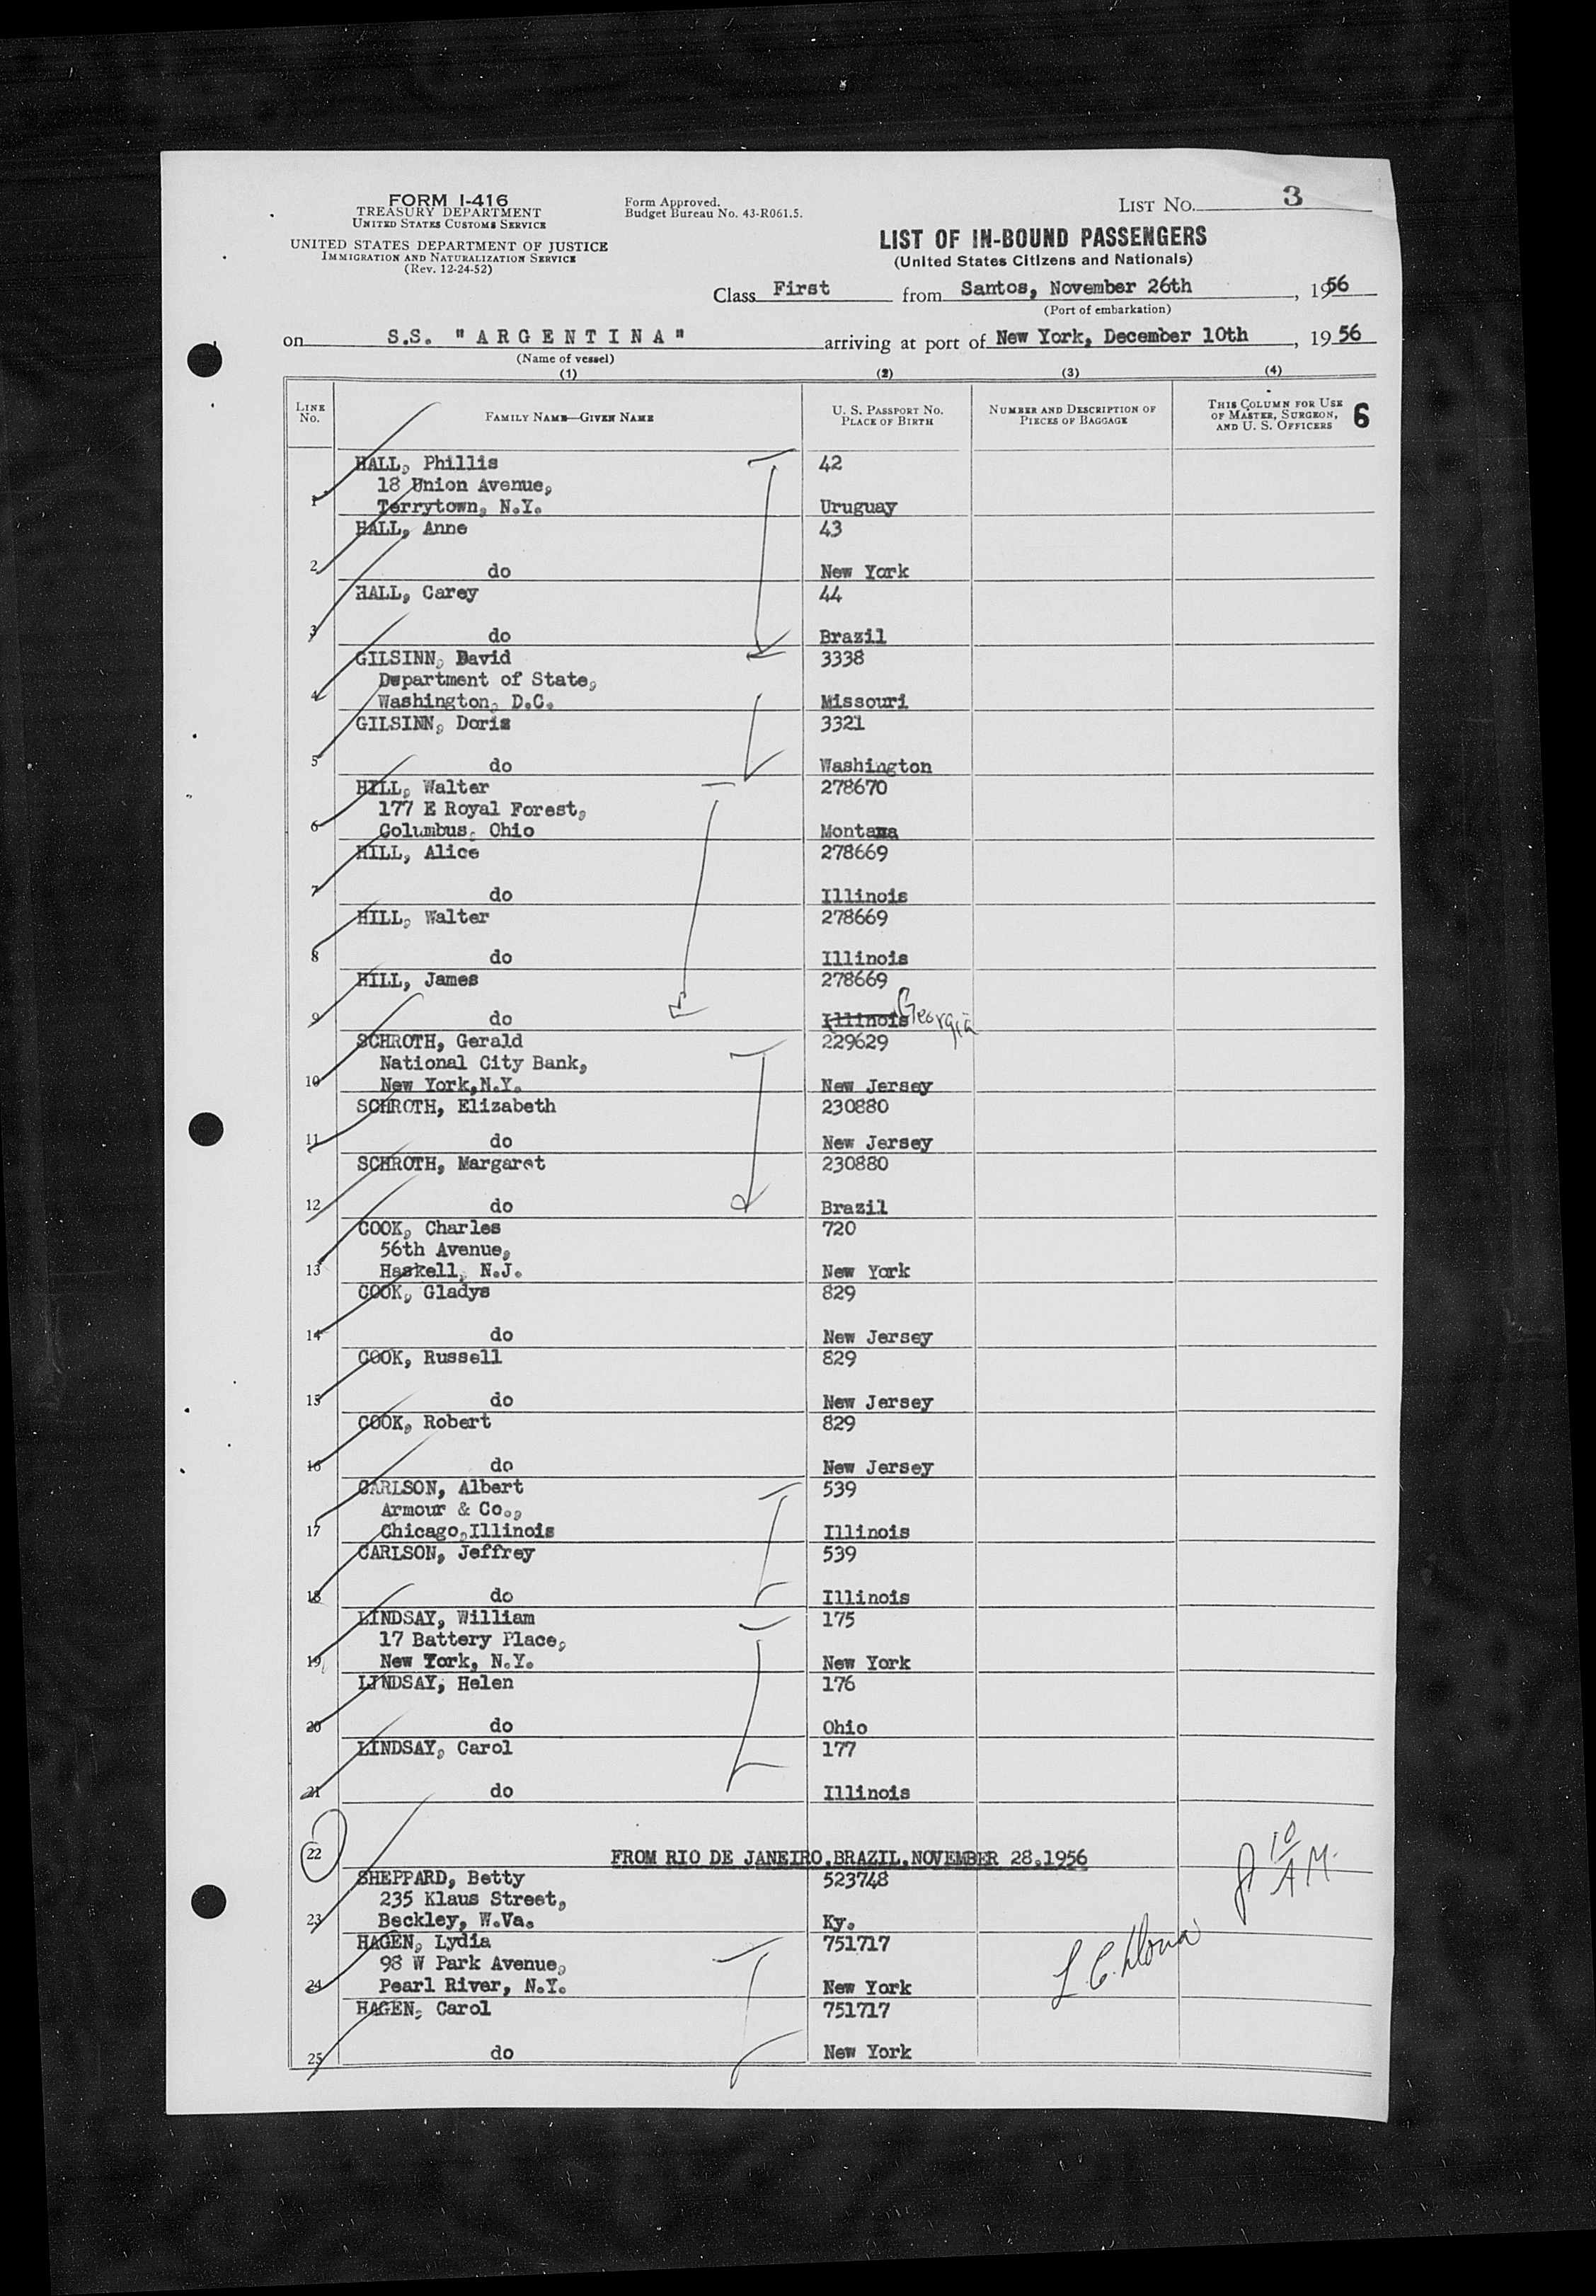 FORM I-416
TREASURY DEPARTMENT
UNITED STATES CUSTOMS SERVICE
UNITED STATES DEPARTMENT OF JUSTICE
IMMIGRATION AND NATURALIZATION SERVICE
(Rev. 12-24-52)
Form Approved.
Budget Bureau No. 43-R061.5.
LIST NO. 3
LIST OF IN-BOUND PASSENGERS
(United States Citizens and Nationals)
Class First from Santos, November 26th, 1956
(Port of embarkation)
on S.S. "ARGENTINA" arriving at port of New York, December 10th, 1956
(Name of vessel)
(1) (2) (3) (4)
LINE NO. FAMILY NAME—GIVEN NAME U. S. PASSPORT NO. PLACE OF BIRTH NUMBER AND DESCRIPTION OF PIECES OF BAGGAGE THIS COLUMN FOR USE OF MASTER, SURGEON, AND U. S. OFFICERS 6
HALL, Phillis 42
18 Union Avenue,
1 Terrytown, N.Y. Uruguay
HALL, Anne 43
2 do New York
HALL, Carey 44
3 do Brazil
GILSINN, David 3338
Dwpartment of State,
4 Washington, D.C. Missouri
GILSINN, Doris 3321
5 do Washington
HILL, Walter 278670
177 E Royal Forest,
6 Columbus, Ohio Montana
HILL, Alice 278669
7 do Illinois
HILL, Walter 278669
8 do Illinois
HILL, James 278669
9 do Illinois Georgia
SCHROTH, Gerald 229629
National City Bank,
10 New York,N.Y. New Jersey
SCHROTH, Elizabeth 230880
11 do New Jersey
SCHROTH, Margaret 230880
12 do Brazil
COOK, Charles 720
56th Avenue,
13 Haskell, N.J. New York
COOK, Gladys 829
14 do New Jersey
COOK, Russell 829
15 do New Jersey
COOK, Robert 829
16 do New Jersey
CARLSON, Albert 539
Armour & Co.,
17 Chicago,Illinois Illinois
CARLSON, Jeffrey 539
18 do Illinois
LINDSAY, William 175
17 Battery Place,
19 New York, N.Y. New York
LINDSAY, Helen 176
20 do Ohio
LINDSAY, Carol 177
21 do Illinois
22 FROM RIO DE JANEIRO,BRAZIL,NOVEMBER 28,1956
SHEPPARD, Betty 523748
235 Klaus Street,
23 Beckley, W.Va. Ky.
HAGEN, Lydia 751717
98 W Park Avenue,
24 Pearl River, N.Y. New York
HAGEN, Carol 751717
25 do New York
10
AM.